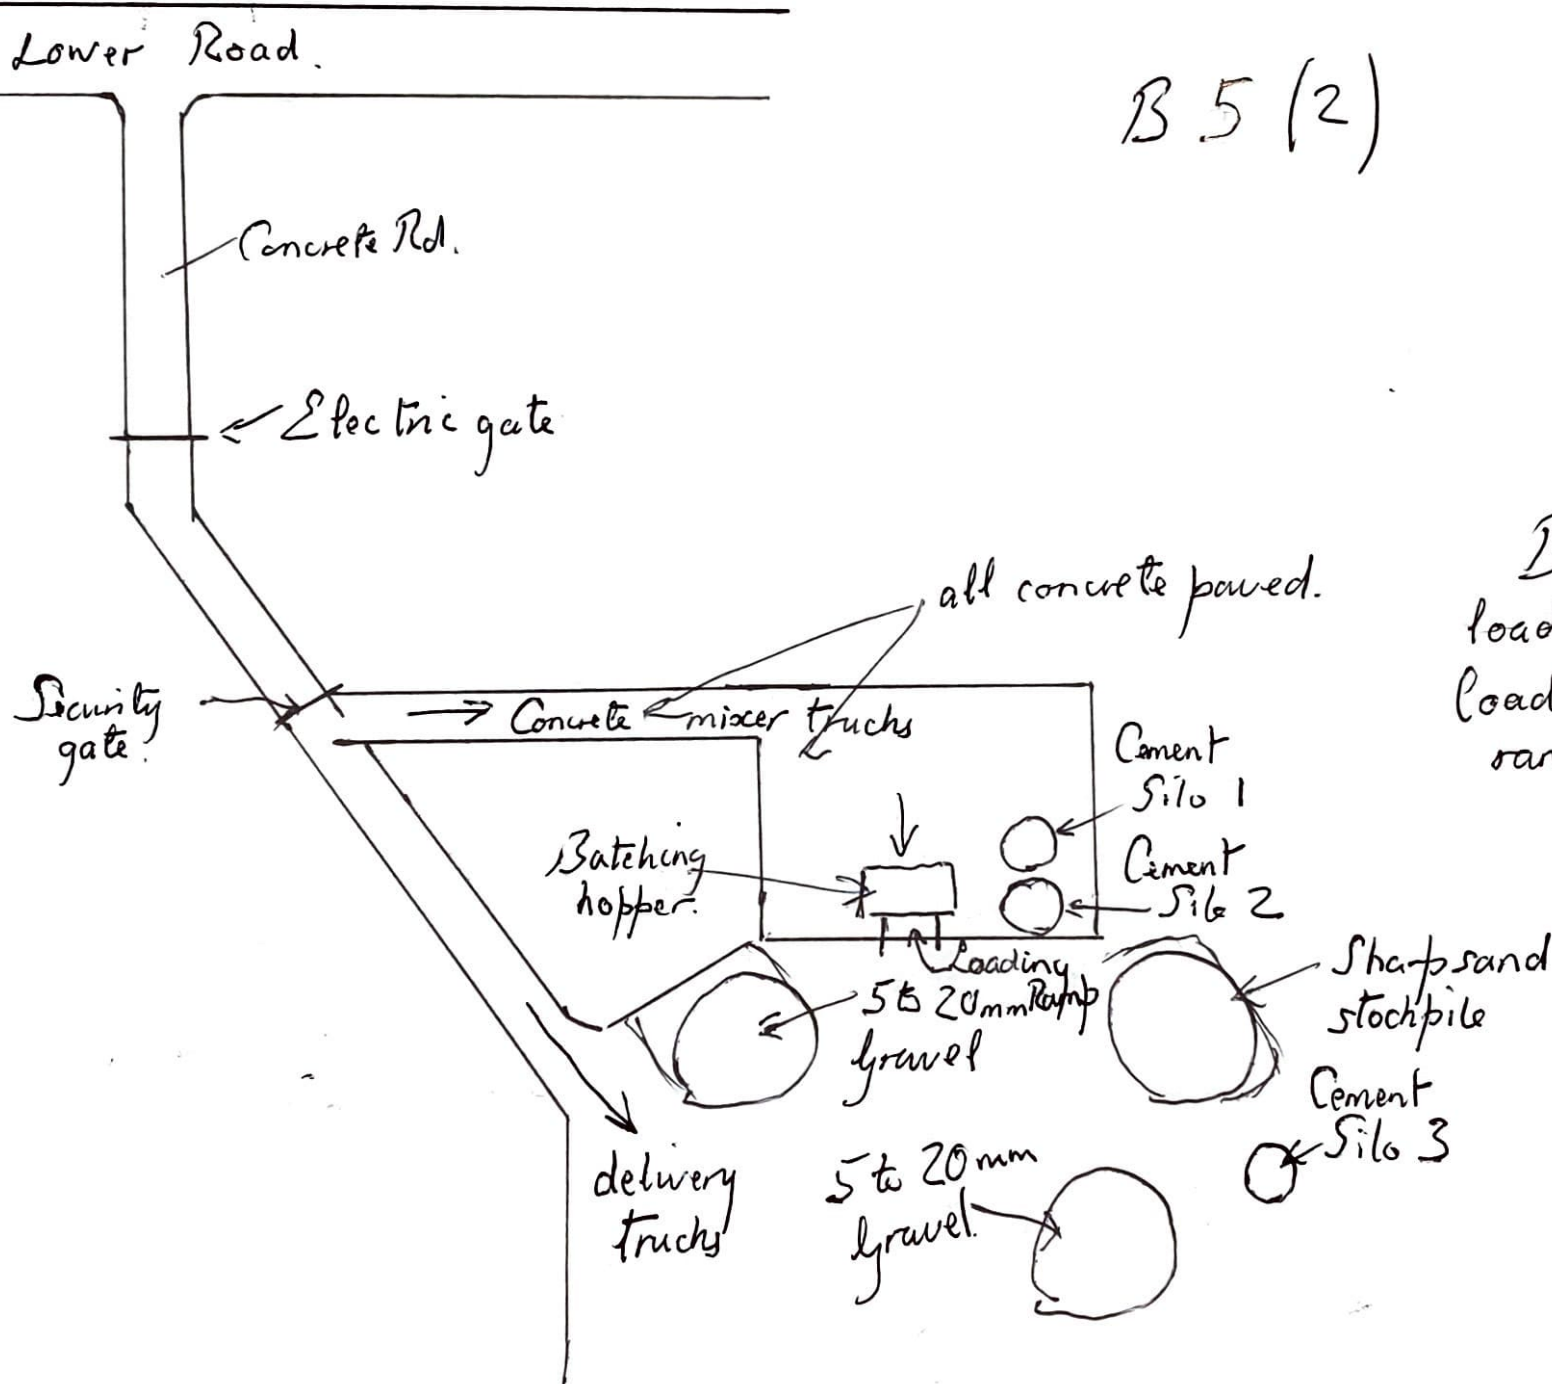 Lower Road.
B 5 (2)
Concrete Rd.
Electric gate
all concrete paved.
load
Load
Security
gate.
Concrete mixer trucks
Cement
Silo 1
Batching
hopper.
Cement
Silo 2
Loading
Ramp
5 to 20mm
Gravel
Sharp sand
stockpile
Cement
Silo 3
delivery
trucks
5 to 20mm
Gravel.